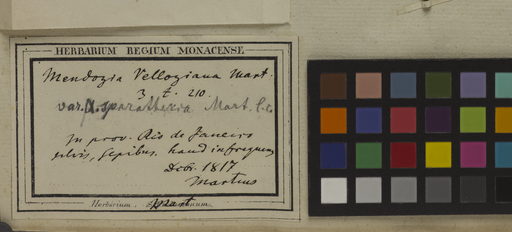 HERBARIUM REGIUM MONACENSE
Mendozia Velloziana Mart.
3. t. 210.
var. Mart. l. c.
In prov. Rio de Janeiro
silvis, sepibus, haud infrequens
Dcbr. 1817
Martius
Herbarium Mart